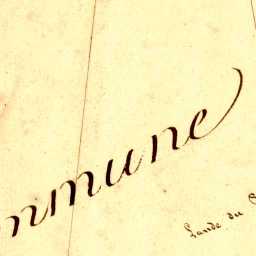 mmune
Lande du